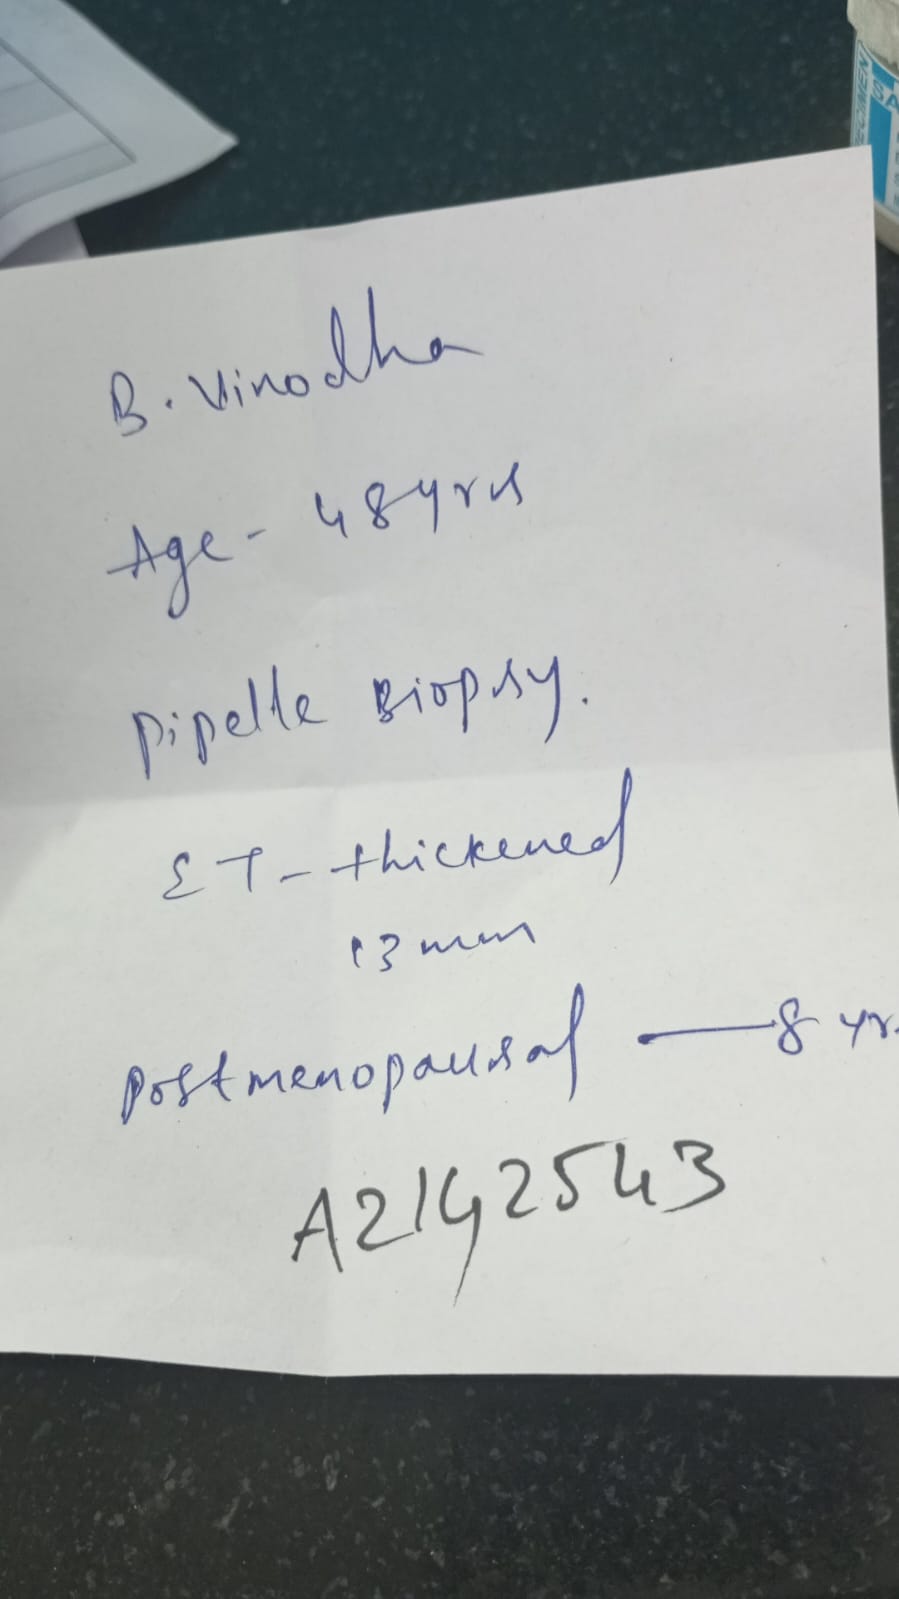 B. Vinodha
Age - 48 yrs
Pipelle Biopsy.
ET - thickened
13 mm
Postmenopausal — 8 yr.
A2142543
SPECIMEN
SA